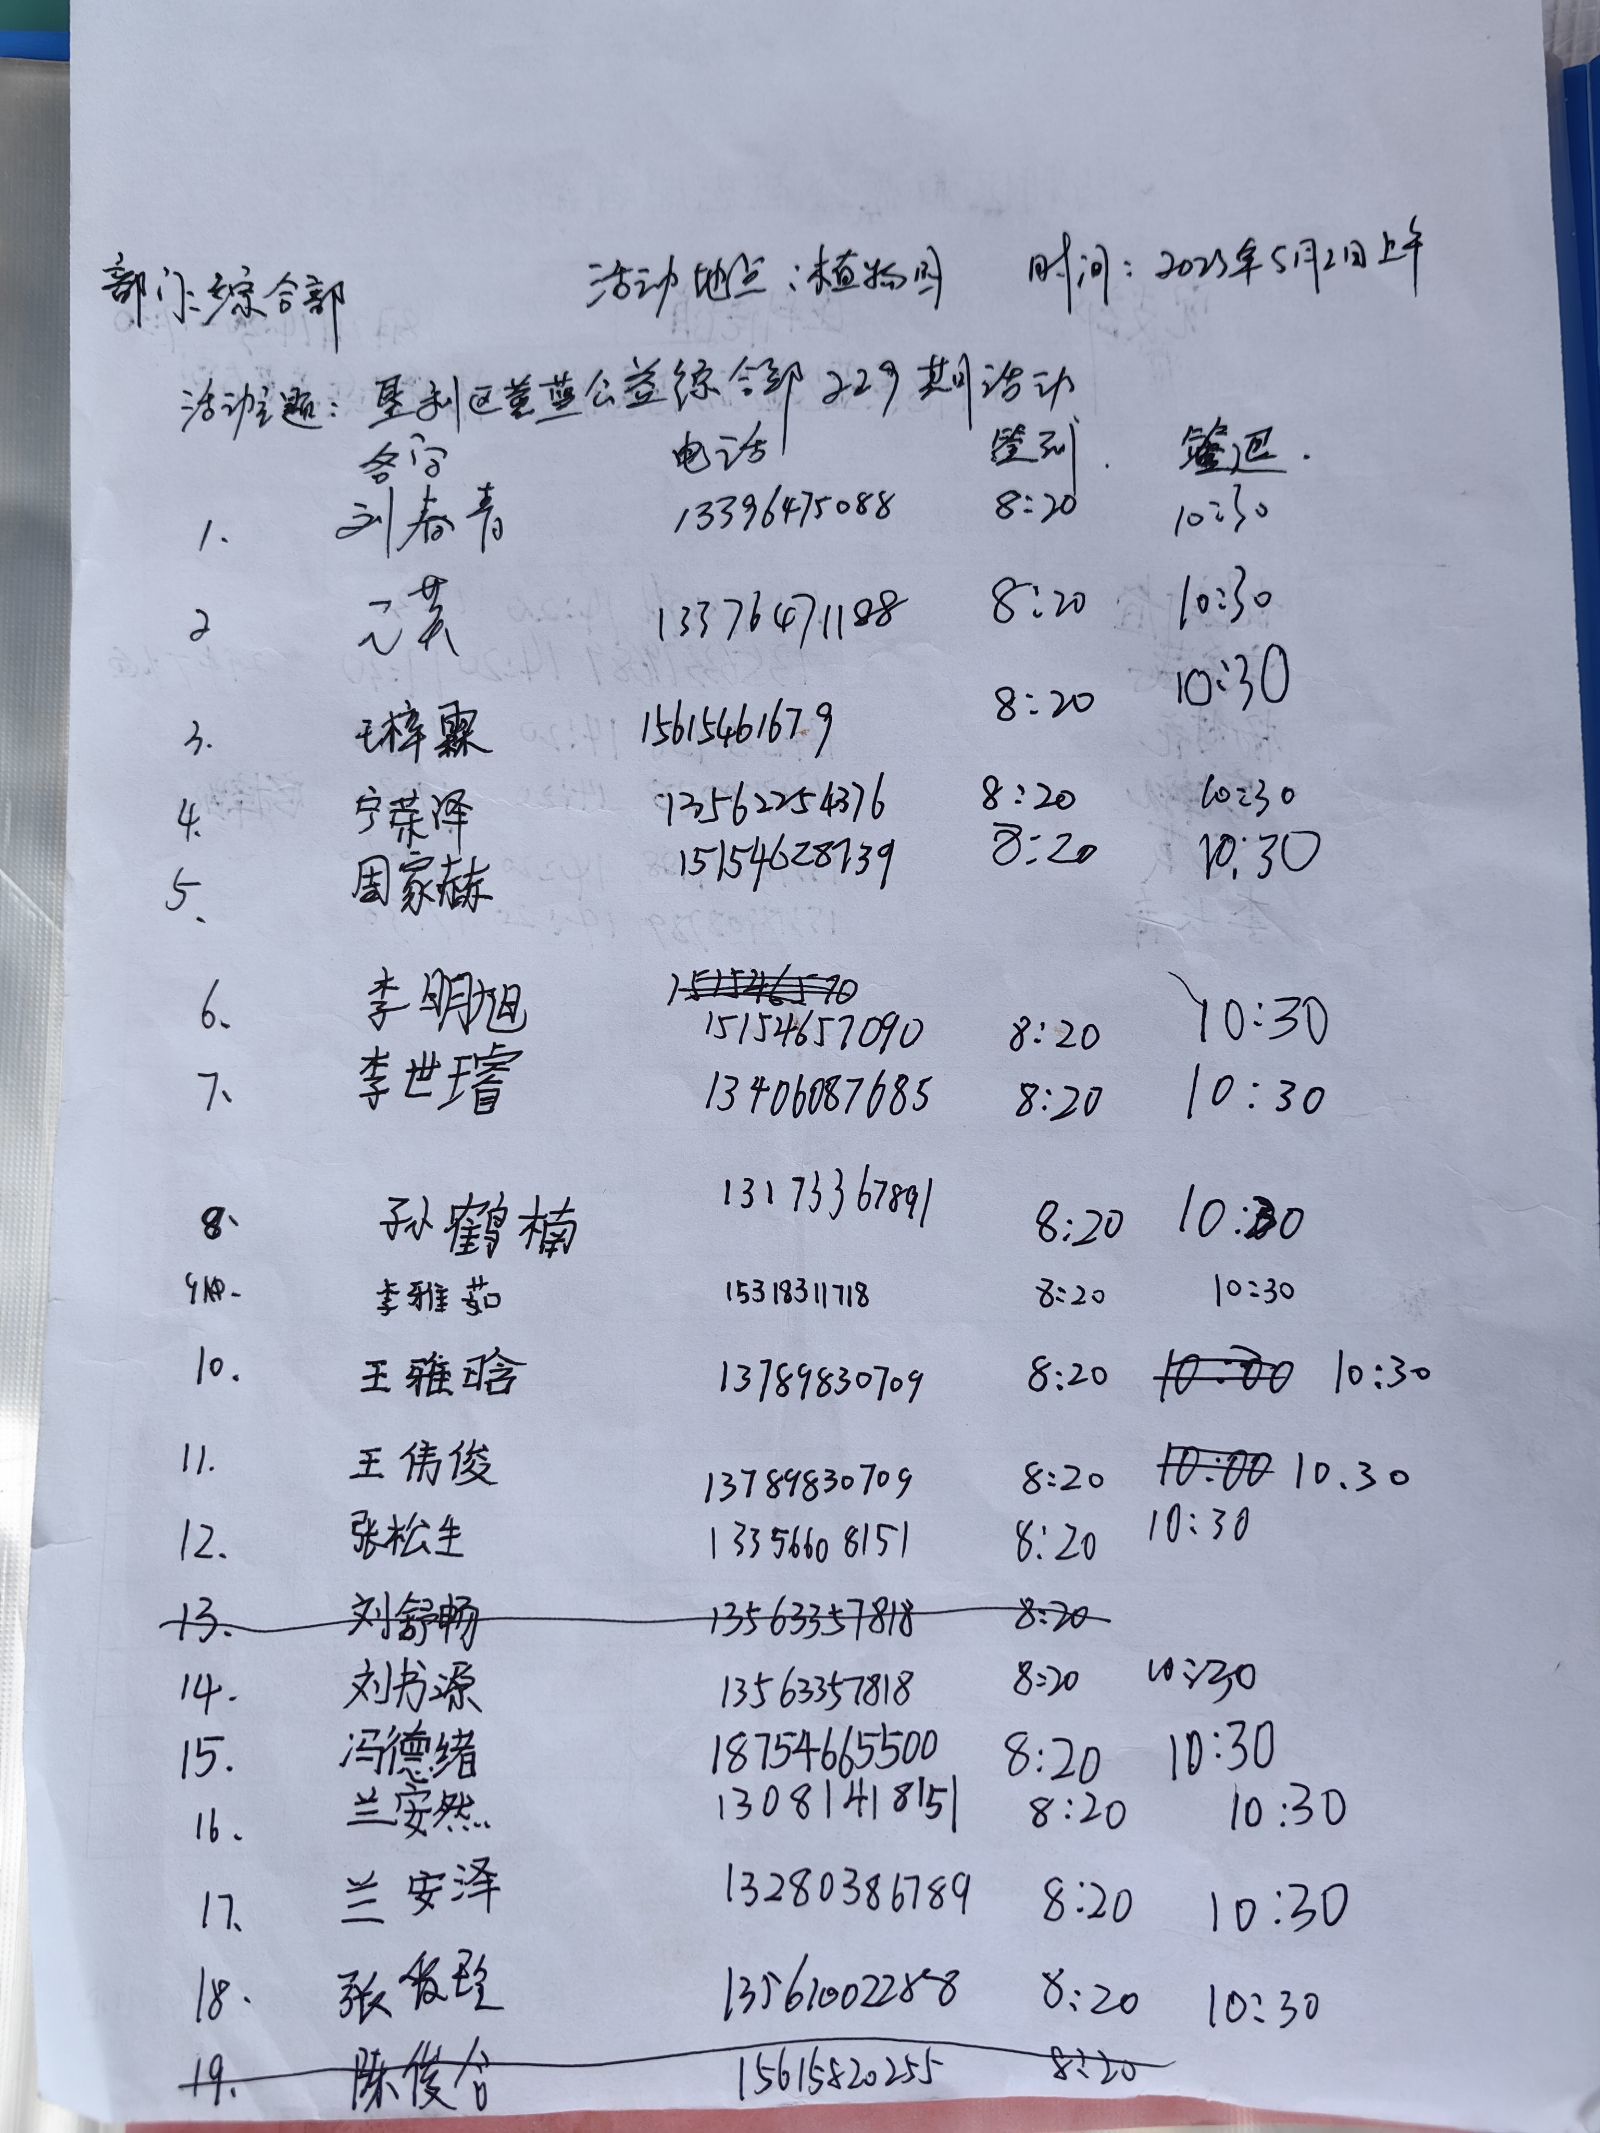 部门:综合部 活动地点:植物园 时间:2023年5月21日上午
活动主题:垦利区蒄蓝公益综合部229期活动
名字 电话 签到 签退
1. 刘春青 13396475088 8:20 10:30
2 13376471188 8:20 10:30
3. 王梓霖 15615461679 8:20 10:30
4. 宁荣泽 13562254376 8:20 10:30
5. 周家赫 15154628739 8:20 10:30
6. 李明旭 1515246570
15154657090 8:20 10:30
7. 李世瑃 13406087685 8:20 10:30
8. 孙鹤楠 13173367891 8:20 10:30
9. 李雅茹 15318311718 8:20 10:30
10. 王雅晗 13789830709 8:20 10:00 10:30
11. 王伟俊 13789830709 8:20 10:00 10.30
12. 张松生 13356608151 8:20 10:30
13. 刘舒畅 13563357818 8:20
14. 刘书源 13563357818 8:20 10:30
15. 冯德绪 18754665500 8:20 10:30
16. 兰安然 13081418151 8:20 10:30
17. 兰安泽 13280386789 8:20 10:30
18. 张 13561002288 8:20 10:30
19. 陈俊合 15615820255 8:20